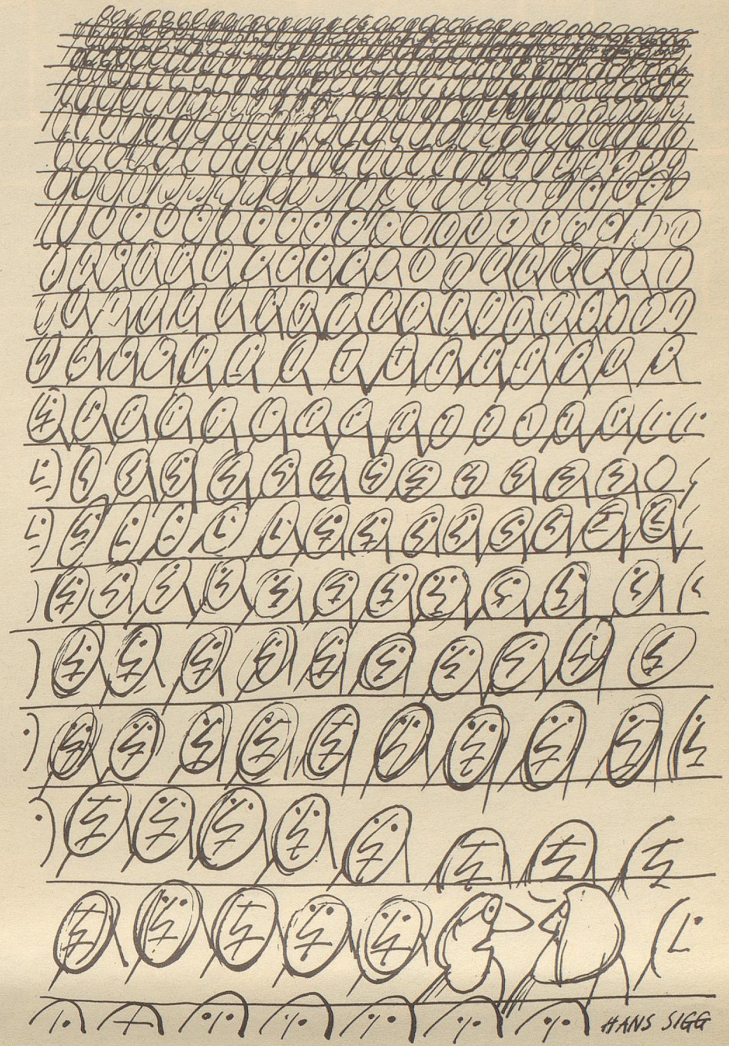 HANS SIGG